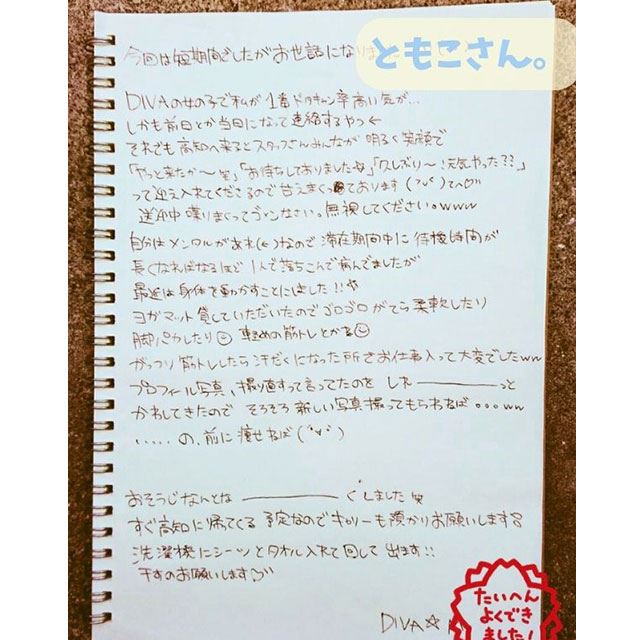 ともこさん。
今回は短期間でしたがお世話になりま
DIVAの女の子で私が1番ドタキャン率高い気が...
しかも前日とか当日になって連絡するやつ←
それでも高知へ来るとスタッフさんみんなが 明るく笑顔で
「やっと来たか〜笑」「お待ちしておりました」「久しぶり〜!元気やった??」
って迎え入れてくださるので甘えまくっております
送迎中 喋りまくってゴメンなさい。無視してください。www
自分はメンタルがあれ(←)なので 滞在期間中に 待機時間が
長くなればなるほど 1人で落ちこんで病んでましたが
最近は身体を動かすことにしました!!
ヨガマット貸していただいたのでゴロゴロがてら柔軟したり
脚パカしたり☺ 軽めの筋トレとかる☺
がっつり筋トレしたら汗だくになった所でお仕事入って大変でしたww
プロフィール写真、撮り直すって言ってたのを しれーーーっと
かわしてきたので そろそろ新しい写真撮ってもらわねば 。。。ww
..... の、前に痩せねば (°∀°)
おそうじなんとなーーーーくしました
すぐ高知に帰ってくる 予定なのでキャリーも預かりお願いします
洗濯機にシーツとタオル入れて回して出ます!!
干すのお願いします♡
DIVA☆
たいへん
よくでき
ました!